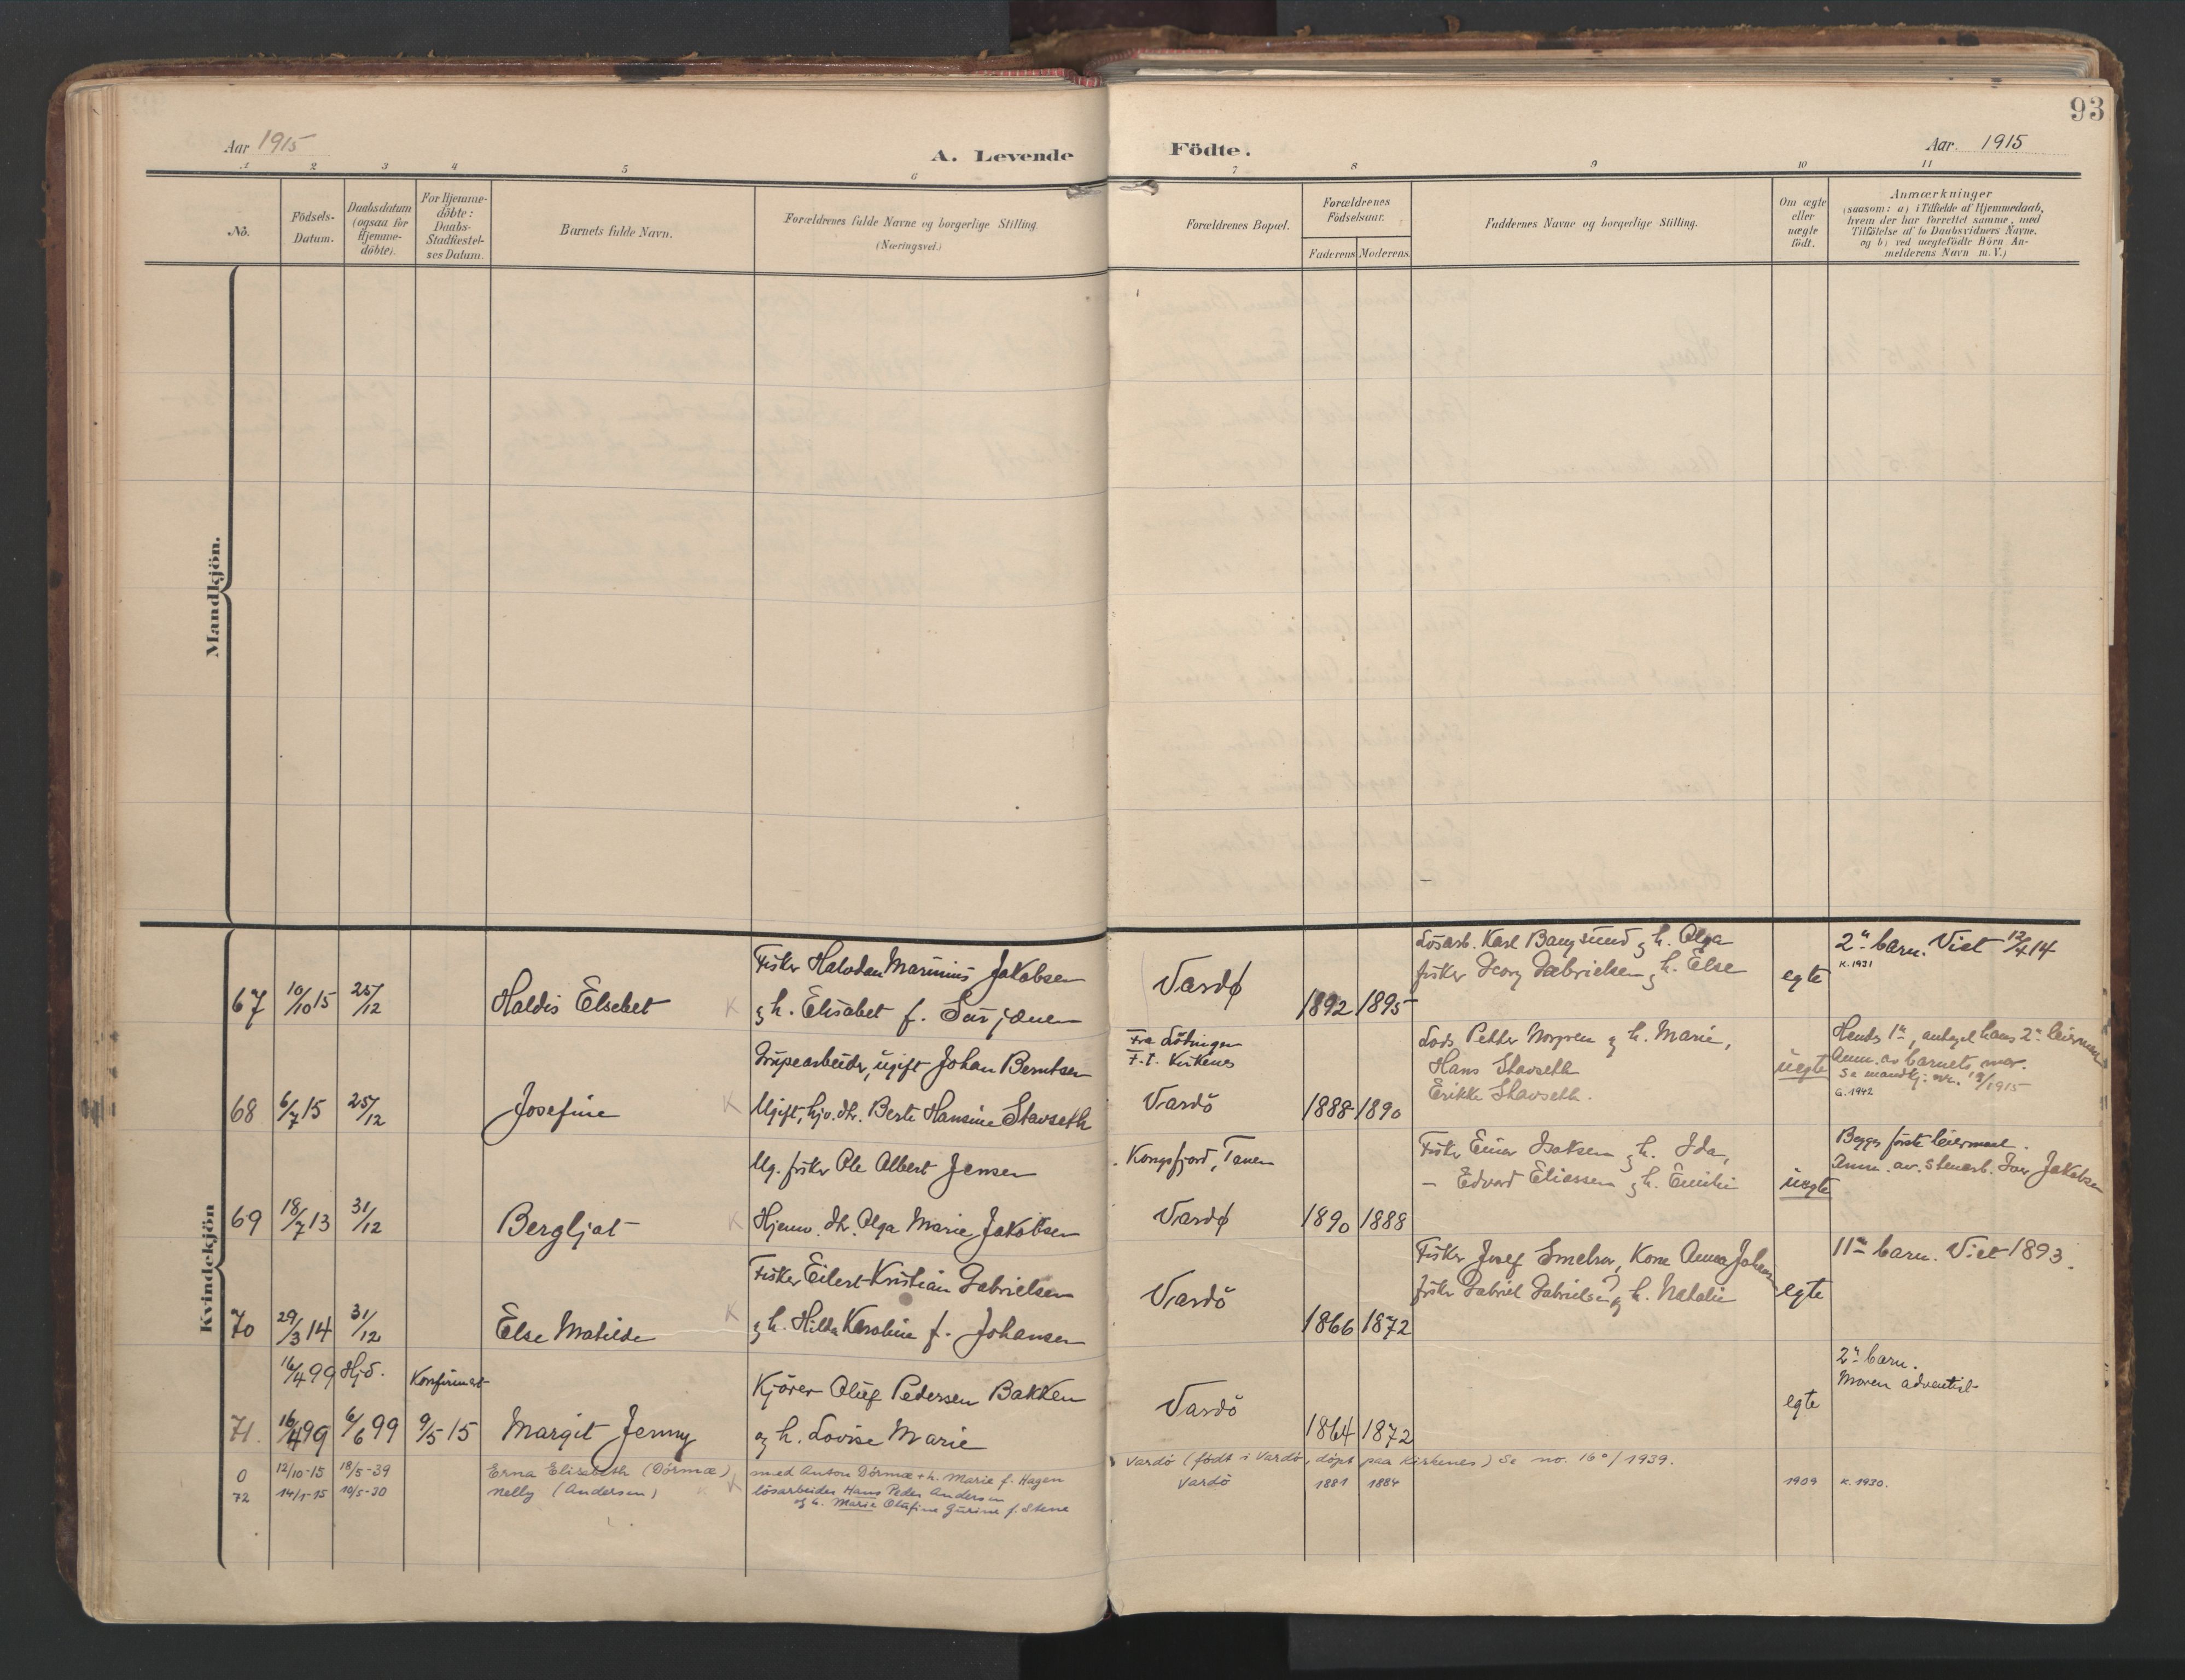 93
Aar 1915
A. Levende Födte.
Aar. 1915
1 2 3 4 5 6 7 8 9 10 11
No.
Födsels-
Datum.
Daabsdatum
(ogsaa for
Hjemme-
döbte).
For Hjemme-
döbte:
Daabs-
Stadfæstel-
ses Datum.
Barnets fulde Navn.
Forældrenes fulde Navne og borgerlige Stilling
(Næringsvei.)
Forældrenes Bopæl.
Forældrenes
Födselsaar.
Faderens Moderens
Faddernes Navne og borgerlige Stilling.
Om ægte
eller
uægte
födt.
Anmærkninger
(saasom: a) i Tilfælde af Hjemmedaab,
hvem der har forrettet samme, med
Tilföielse af to Daabsvidners Navne.
og b) ved uægtefödte Börn An-
melderens Navn m. V.)
Mandkjön.
Kvindekjön
67
10/10 15
25/12
Haldis Elsebet
K
Fisker Halvdan Marinius Jakobsen
g h. Elisabet f.
Vardø
1892 1895
Lösarb. Karl Bangsund g h. Olga
fisker Georg Gabrielsen g h. Else
egte
2n barn. Viet 12/4 14
K. 1931
68
6/7 15
25/12
Josefine
K
Grubearbeider, ugift Johan Berntsen
Ugift, hjv. dtr. Berte Hansine Stavseth
Fra Lödingen
F.t. Kirkenes
Vardö
1888 1890
Lods Petter Norgren g h. Marie,
Hans Stavseth
Erikke Stavseth.
uegte
Hendes 1te, antagel. hans 2n leiermaal
Anm. av barnets mor.
Se mandkj. nr. 19/1915
G. 1942
69
18/7 13
31/12
Bergljot
K
Ug. fisker Ole Albert Jensen
Hjemv. dtr. Olga Marie Jakobsen
Kongsfjord, Tanen
Vardø
1890 1888
Fisker Einar Isaksen g h. Ida,
– Edvard Eliassen g h. Emilie
uegte
Begges förste leiermaal.
Anm. av. stenarb. Ivar Jakobsen
70
29/3 14
31/12
Else Matilde
K
Fisker Eilert Kristian Gabrielsen
g h. Hilda Karoline f. Johansen
Vardö
1866 1872
Fisker Josef Smelror, Kone Anna Johansen
fisker Gabriel Gabrielsen g h. Natalie
egte
11te barn. Viet 1893.
71.
16/4 99 Hjd.
16/4 99
6/6 99
Konfirmert
9/5 15
Margit Jenny
Kjörer Oluf Pedersen Bakken
og h. Lovise Marie
Vardö
1864 1872
egte
2n barn.
Moren adventist
0
12/10-15
18/5-39
Erna Elisabeth (Dörmæ)
K
med Anton Dörmæ + h. Marie f. Hagen
Vardö (födt i Vardö, döpt paa Kirkenes) Se no. 16 a/1939.
72
14/1-15
10/5-30
Nelly (Andersen)
K
lösarbeider Hans Peder Andersen
og h. Marie Olufine Gurine f. Stene
Vardö
1881 1884
1909
K. 1930.